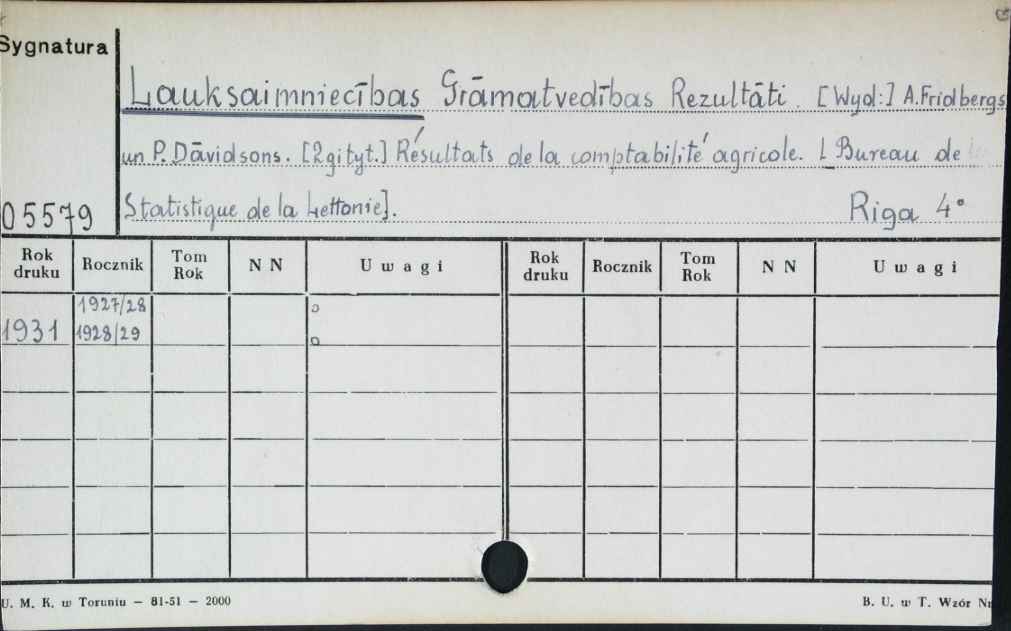 Sygnatura
Lauksaimniecības Grāmatvedības Rezultāti. [Wyd:] A. Fridbergs
un P. Dāvidsons. [2gi tyt.] Résultats de la comptabilité agricole. [Bureau de
05579 Statistique de la Lettonie]. Riga 4°
Rok druku Rocznik Tom Rok N N Uwagi Rok druku Rocznik Tom Rok N N Uwagi
1927/28
1931 1928/29
U. M. K. w Toruniu — 81-51 — 2000 B. U. w T. Wzór Nr